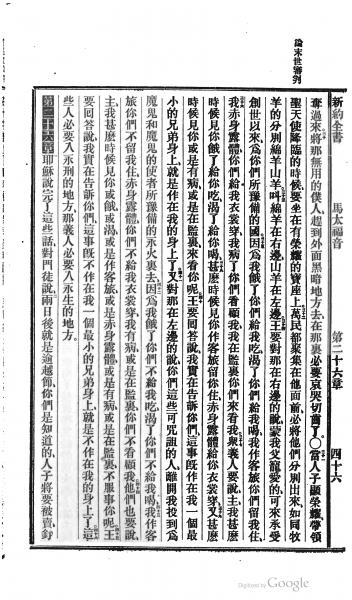 新約全書
馬太福音
第二十六章
四十六
論末世審判
奪過來將那無用的僕人趕到外面黑暗地方去在那裏必要哀哭切齒了○當人子顯榮耀帶領
聖天使降臨的時候要坐在有榮耀的寶座上萬民都聚集在他面前必將他們分別出來如同牧
羊的分別綿羊山羊叫綿羊在右邊山羊在左邊王要對那在右邊的說蒙我父寵愛的可來承受
創世以來爲你們所豫備的國因爲我餓了你們給我吃渴了你們給我喝我作客旅你們留我住
我赤身露體你們給我衣裳穿我病了你們看顧我我在監裏你們來看我衆義人要說主我甚麽
時候見你餓了給你吃渴了給你喝甚麽時候見你作客旅留你住赤身露體給你衣裳穿又甚麽
時候見你或是有病或是在監裏來看你呢王要回答說我實在告訴你們這事旣作在我一個最
小的兄弟身上就是作在我的身上了又對那在左邊的說你們這些可咒詛的人離開我投到爲
魔鬼和魔鬼的使者所豫備的永火裏去因爲我餓了你們不給我吃渴了你們不給我喝我作客
旅你們不留我住赤身露體你們不給我衣裳穿我有病或是在監裏你們不看顧我他們也要說
主我甚麽時候見你或餓或渴或是作客旅或是赤身露體或是有病或是在監裏不服事你呢王
要回答說我實在告訴你們這事旣不作在我一個最小的兄弟身上就是不作在我的身上了這
些人必要入永刑的地方那義人必要入永生的地方
第二十六章耶穌說完了這些話對門徒說兩日後就是逾越節你們是知道的人子將要被賣釘
Digitized by Google